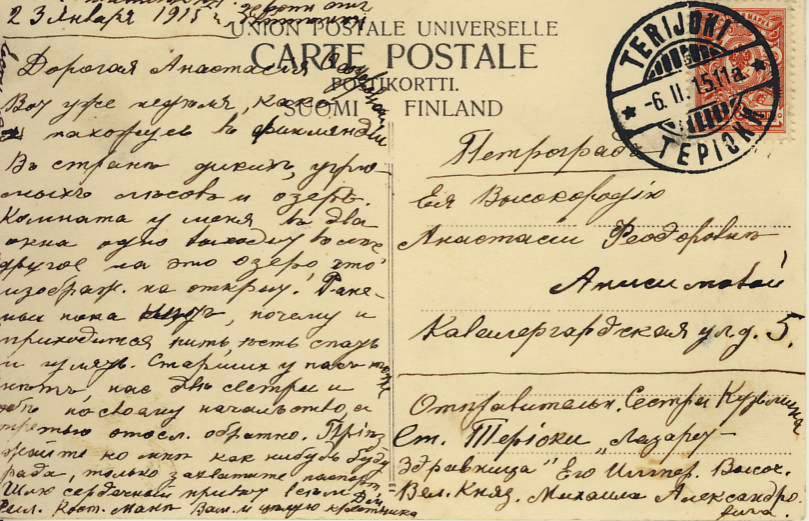 23 Января 1915 г.
UNION POSTALE UNIVERSELLE
CARTE POSTALE
POSTIKORTTI.
SUOMI FINLAND
TERIJOKI
6. II. 15 11a
ТЕРІОКИ
Дорогая Анастасия
Вот уже неделя, как
я нахожусь в Финляндіи
Въ странѣ дикихъ, угрю-
мыхъ лѣсовъ и озеръ.
Комната у меня въ два
окна одно выходит
другое на это озеро, что
изображ. на открыт. Ране-
ных пока нѣтъ, почему и
приходится пить, ѣсть спать
и гулять. Старших у насъ
нѣтъ, нас двѣ сестры и
обѣ по своему начальство, а
третью отосл. обратно. Пріѣз
жайте ко мнѣ как нибудь буду
рада, только захватите паспорт
Шлю сердечный привѣт
Петроградъ
Ея Высокородію
Анастасіи Феодоровнѣ
Анисимовой
Кавалергардская ул. д. 5.
Отправительн. Сестра
Ст. Теріоки „Лазарет-
Здравница" Его Импер. Высоч.
Вел. Княз. Михаила Александро
вича.